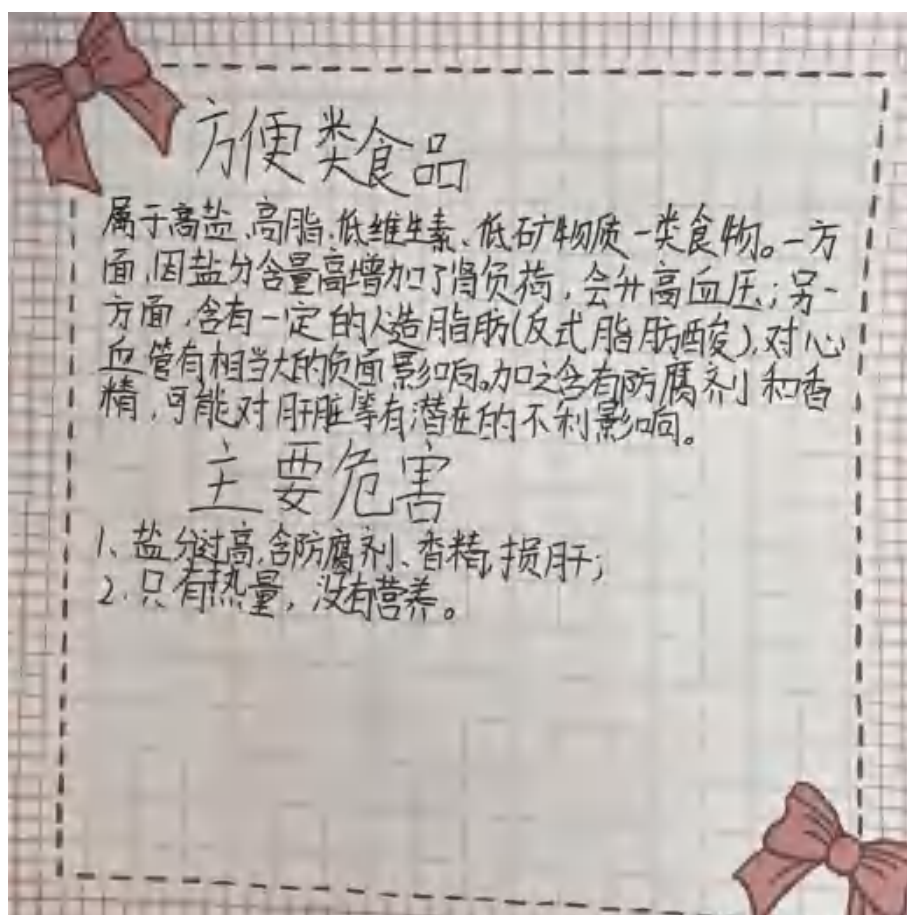 方便类食品
属于高盐、高脂、低维生素、低矿物质一类食物。一方
面,因盐分含量高增加了肾负荷,会升高血压;另一
方面,含有一定的人造脂肪(反式脂肪酸),对心
血管有相当大的负面影响。加之含有防腐剂和香
精,可能对肝脏等有潜在的不利影响。
主要危害
1、盐分过高,含防腐剂、香精,损肝;
2.只有热量,没有营养。